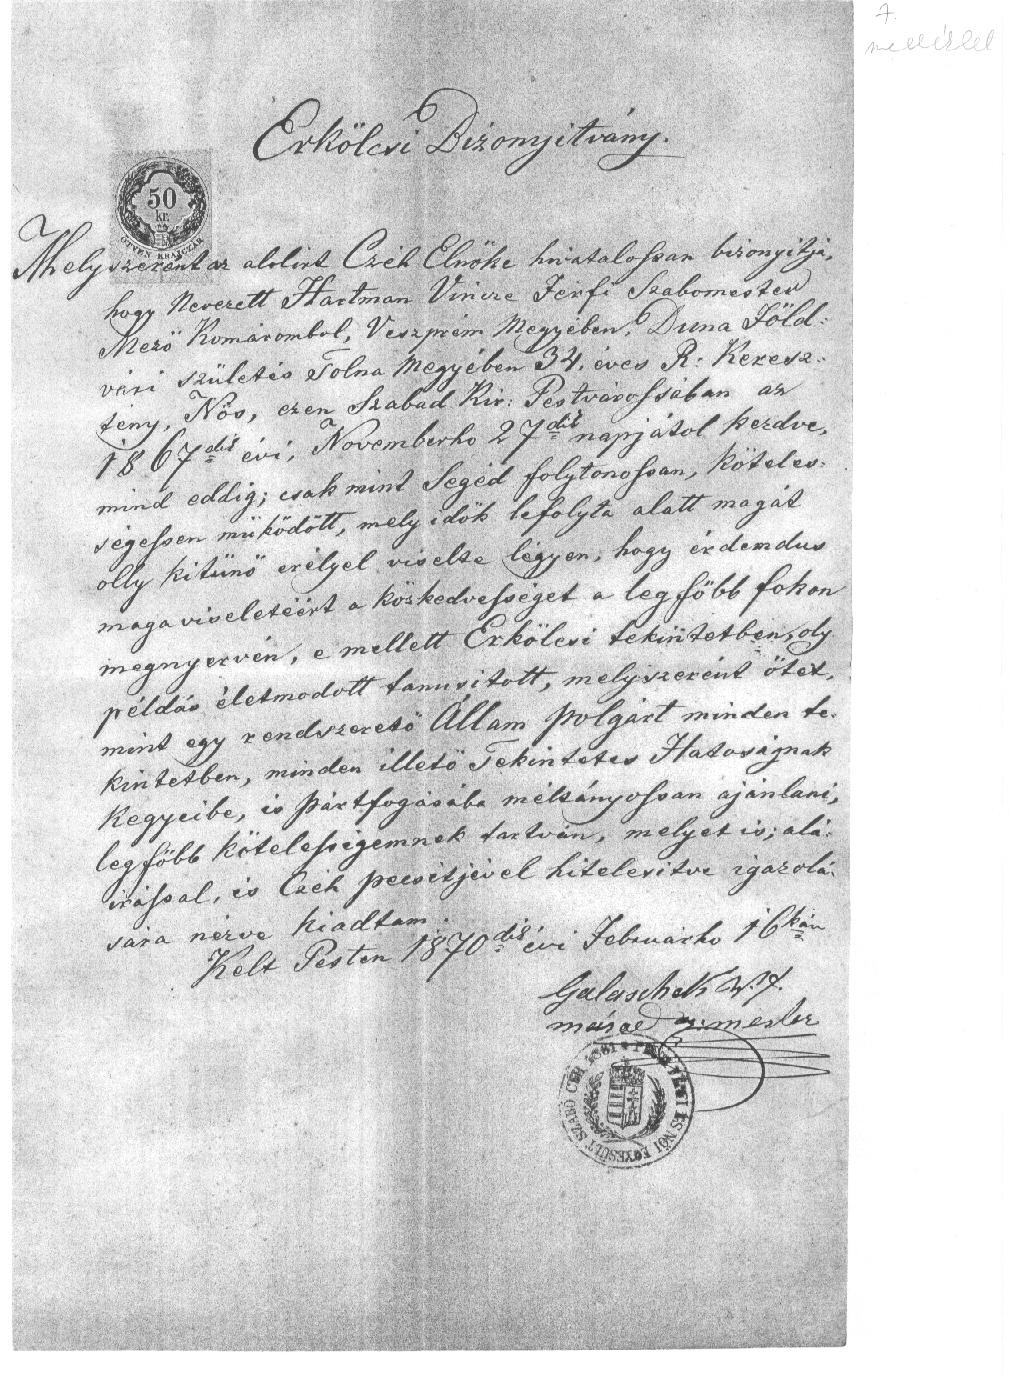 7.
melléklet
Erkölcsi Bizonyitvány.
50
kr.
ÖTVEN KRAJCZÁR
Mhely szerént az alolirt Czéh Elnöke hivatalossan bizonyitja,
hogy Nevezett Hartman Vincze Férfi Szabomester
Mező Komárombol, Veszprém Megyében, Duna Föld-
vári születés Tolna Megyében 34. éves R: Keresz-
tény, Nős, ezen Szabad Kir: Pestvárossában az
1867dik évi, Novemberho 27dik napjátol kezdve,
mind eddig; csak mint Segéd folytonossan, köteles-
ségessen működött, mely idők lefolyta alatt magát
olly kitünő erélyel viselte légyen, hogy érdemdus
maga viseletéért a közkedvességet a legfőbb fokon
megnyervén, e mellett Erkölcsi tekintetben, oly
példás életmodott tanusitott, melyszerént őtet,
mint egy rendszerető Állam polgárt minden te-
kintetben, minden illető Tekintetes Hatoságnak
Kegyeibe, is pártfogásába méltányossan ajánlani,
legfőbb kötelességemnek tartván, melyet is; alá-
irással, és Czéh pecsétjével hitelesitve igazolá-
sára nézve kiadtam.
Kelt Pesten 1870dik évi Februárho 16kán
Galaschek
mester
PESTI FÉRFI ÉS NŐI EGYESÜLT SZABÓ CÉH